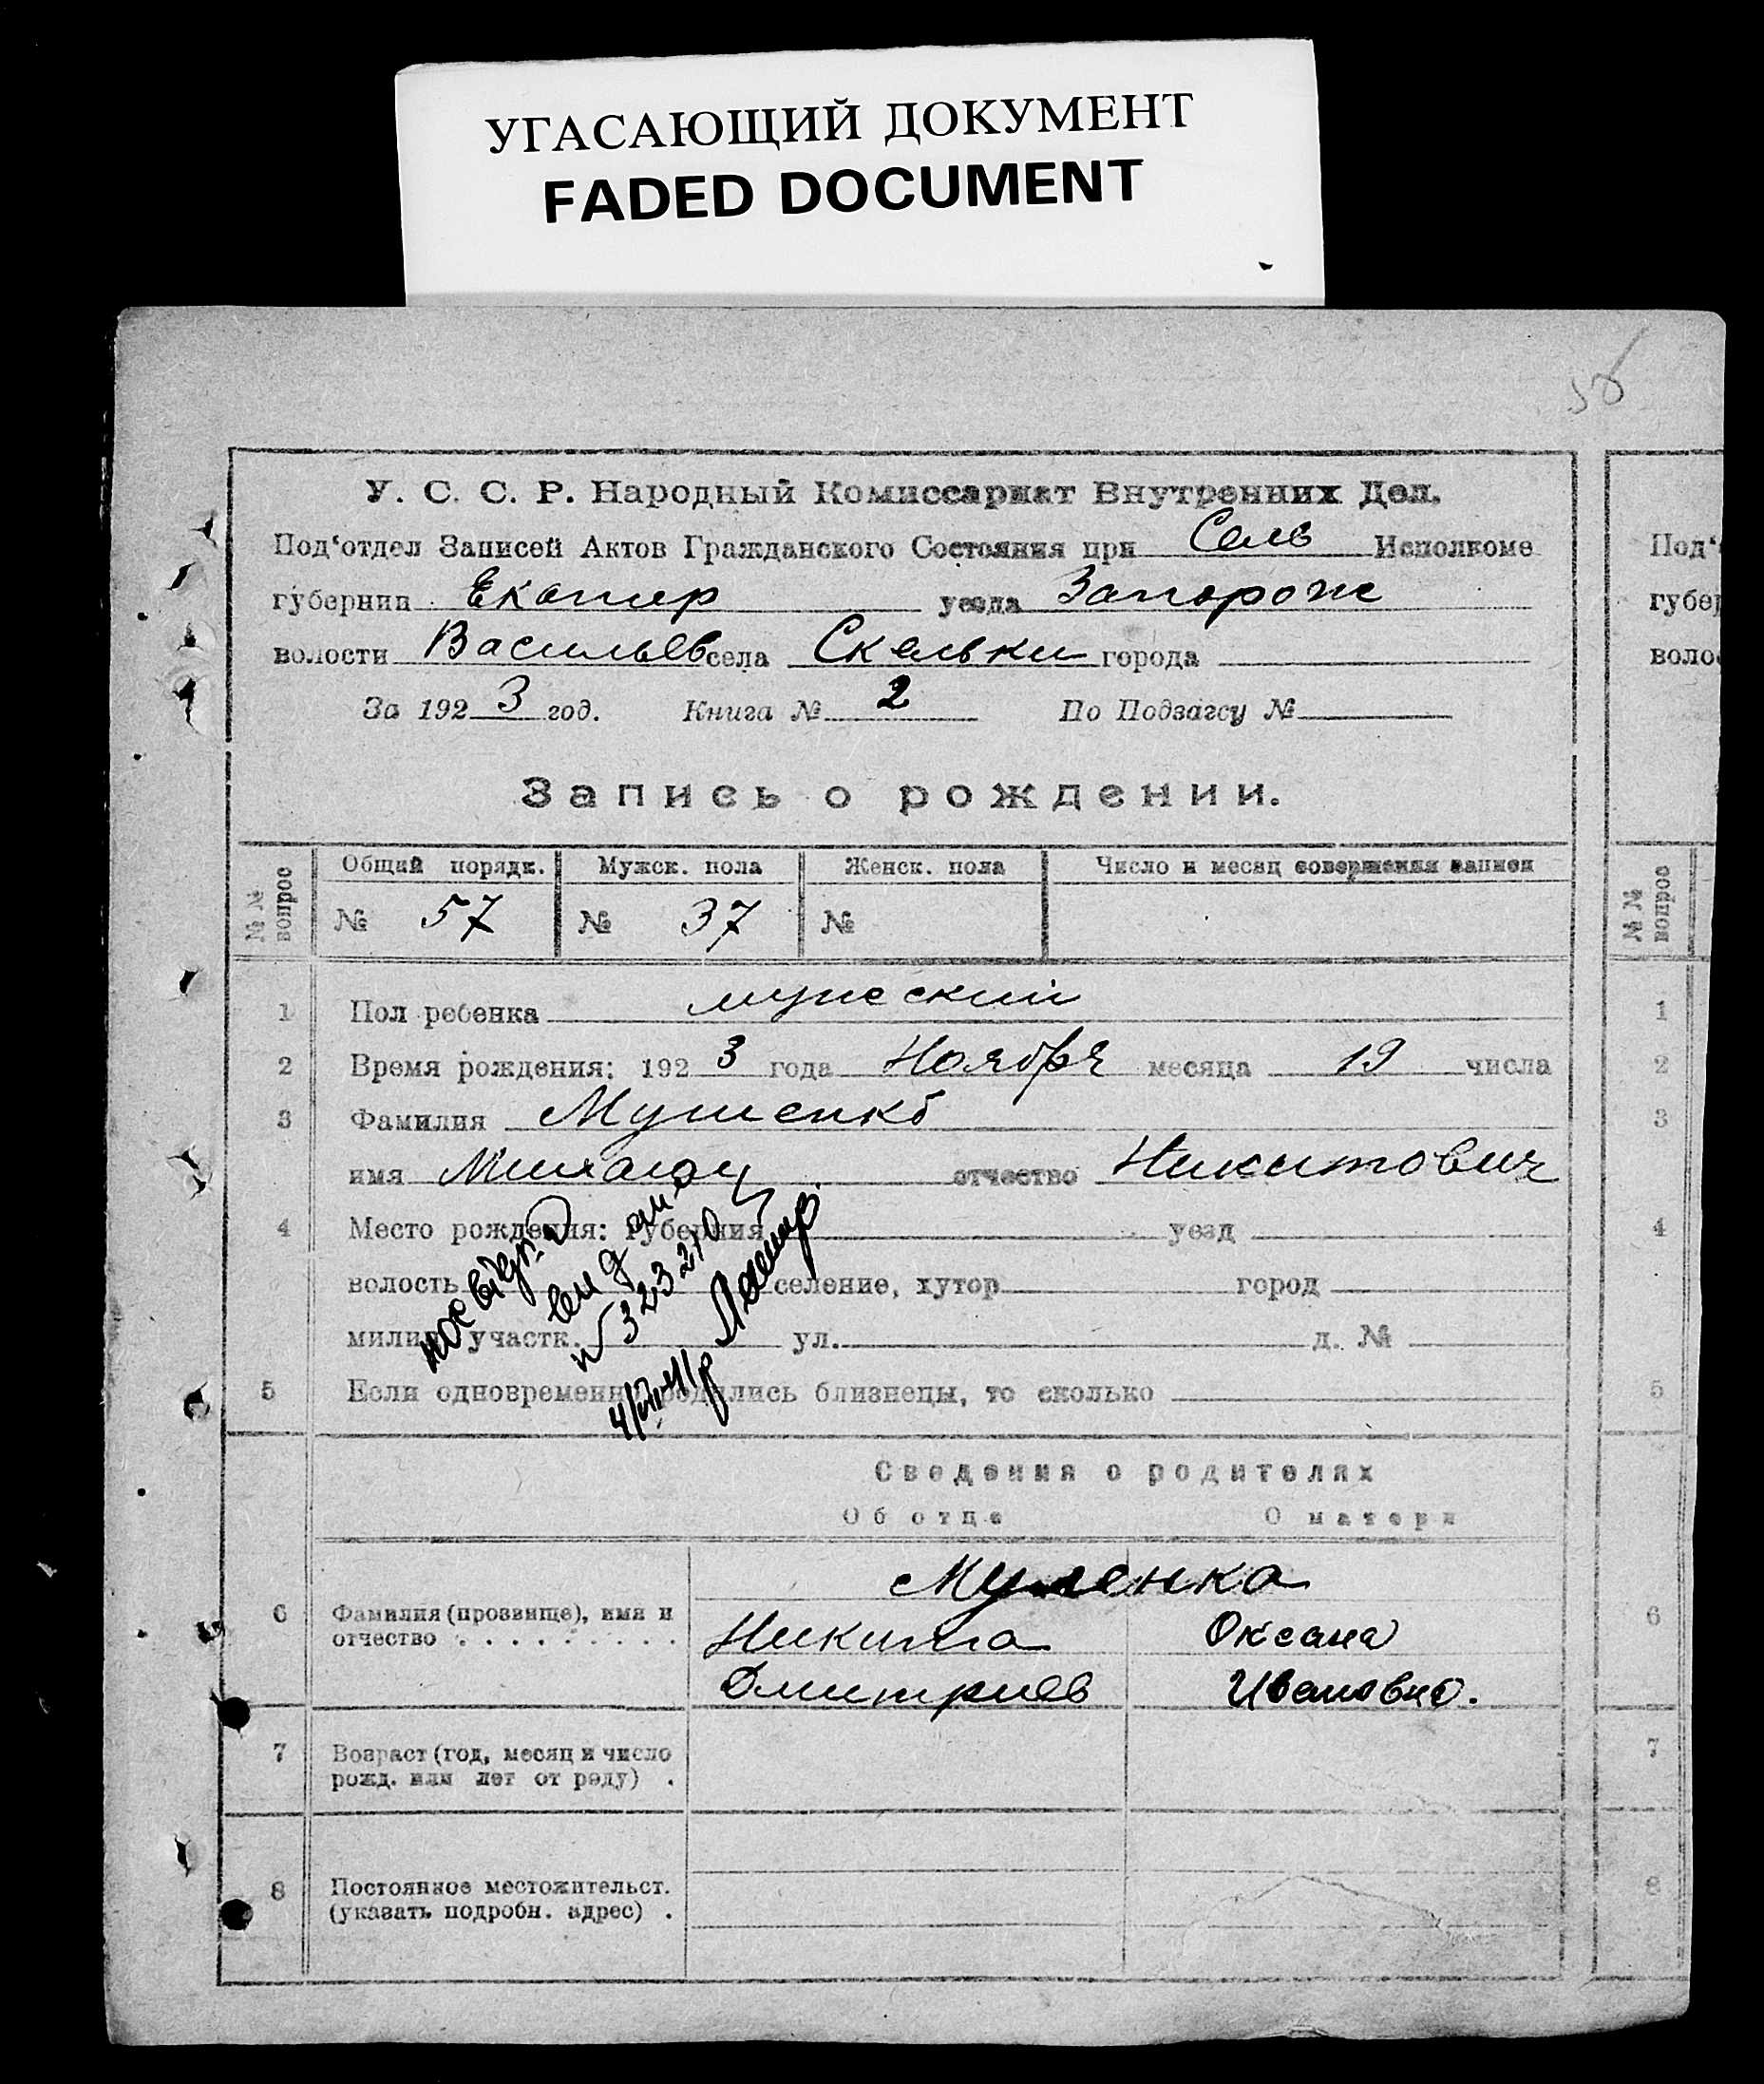 УГАСАЮЩИЙ ДОКУМЕНТ
FADED DOCUMENT
У. С. С. Р. Народный Комиссариат Внутренних Дел.
Под‘отдел Записей Актов Гражданского Состояния при Сель Исполкоме
губернии Екатер уезда Запорож
волости Васильев села Скельки города
За 192 3 год. Книга № 2 По Подзагсу №
Запись о рождении.
№ № вопрос
Общий порядк. Мужск. пола Женск. пола Число и месяц совершения записи
№ 57 № 37 №
1 Пол ребенка мужеский
2 Время рождения: 192 3 года Ноября месяца 19 числа
3 Фамилия
имя отчество Никитович
4 Место рождения: Губерния уезд
волость селение, хутор город
милиц. участк. ул. д. №
5 Если одновременно родились близнецы, то сколько
Сведения о родителях
Об отце О матери
6 Фамилия (прозвище), имя и
отчество
Никита Оксана
Дмитриев Ивановна.
7 Возраст (год, месяц и число
рожд. или лет от роду) .
8 Постоянное местожительст.
(указать подробн. адрес) .
Под‘
губер
воло
№ № вопрос
1
2
3
4
5
6
7
8